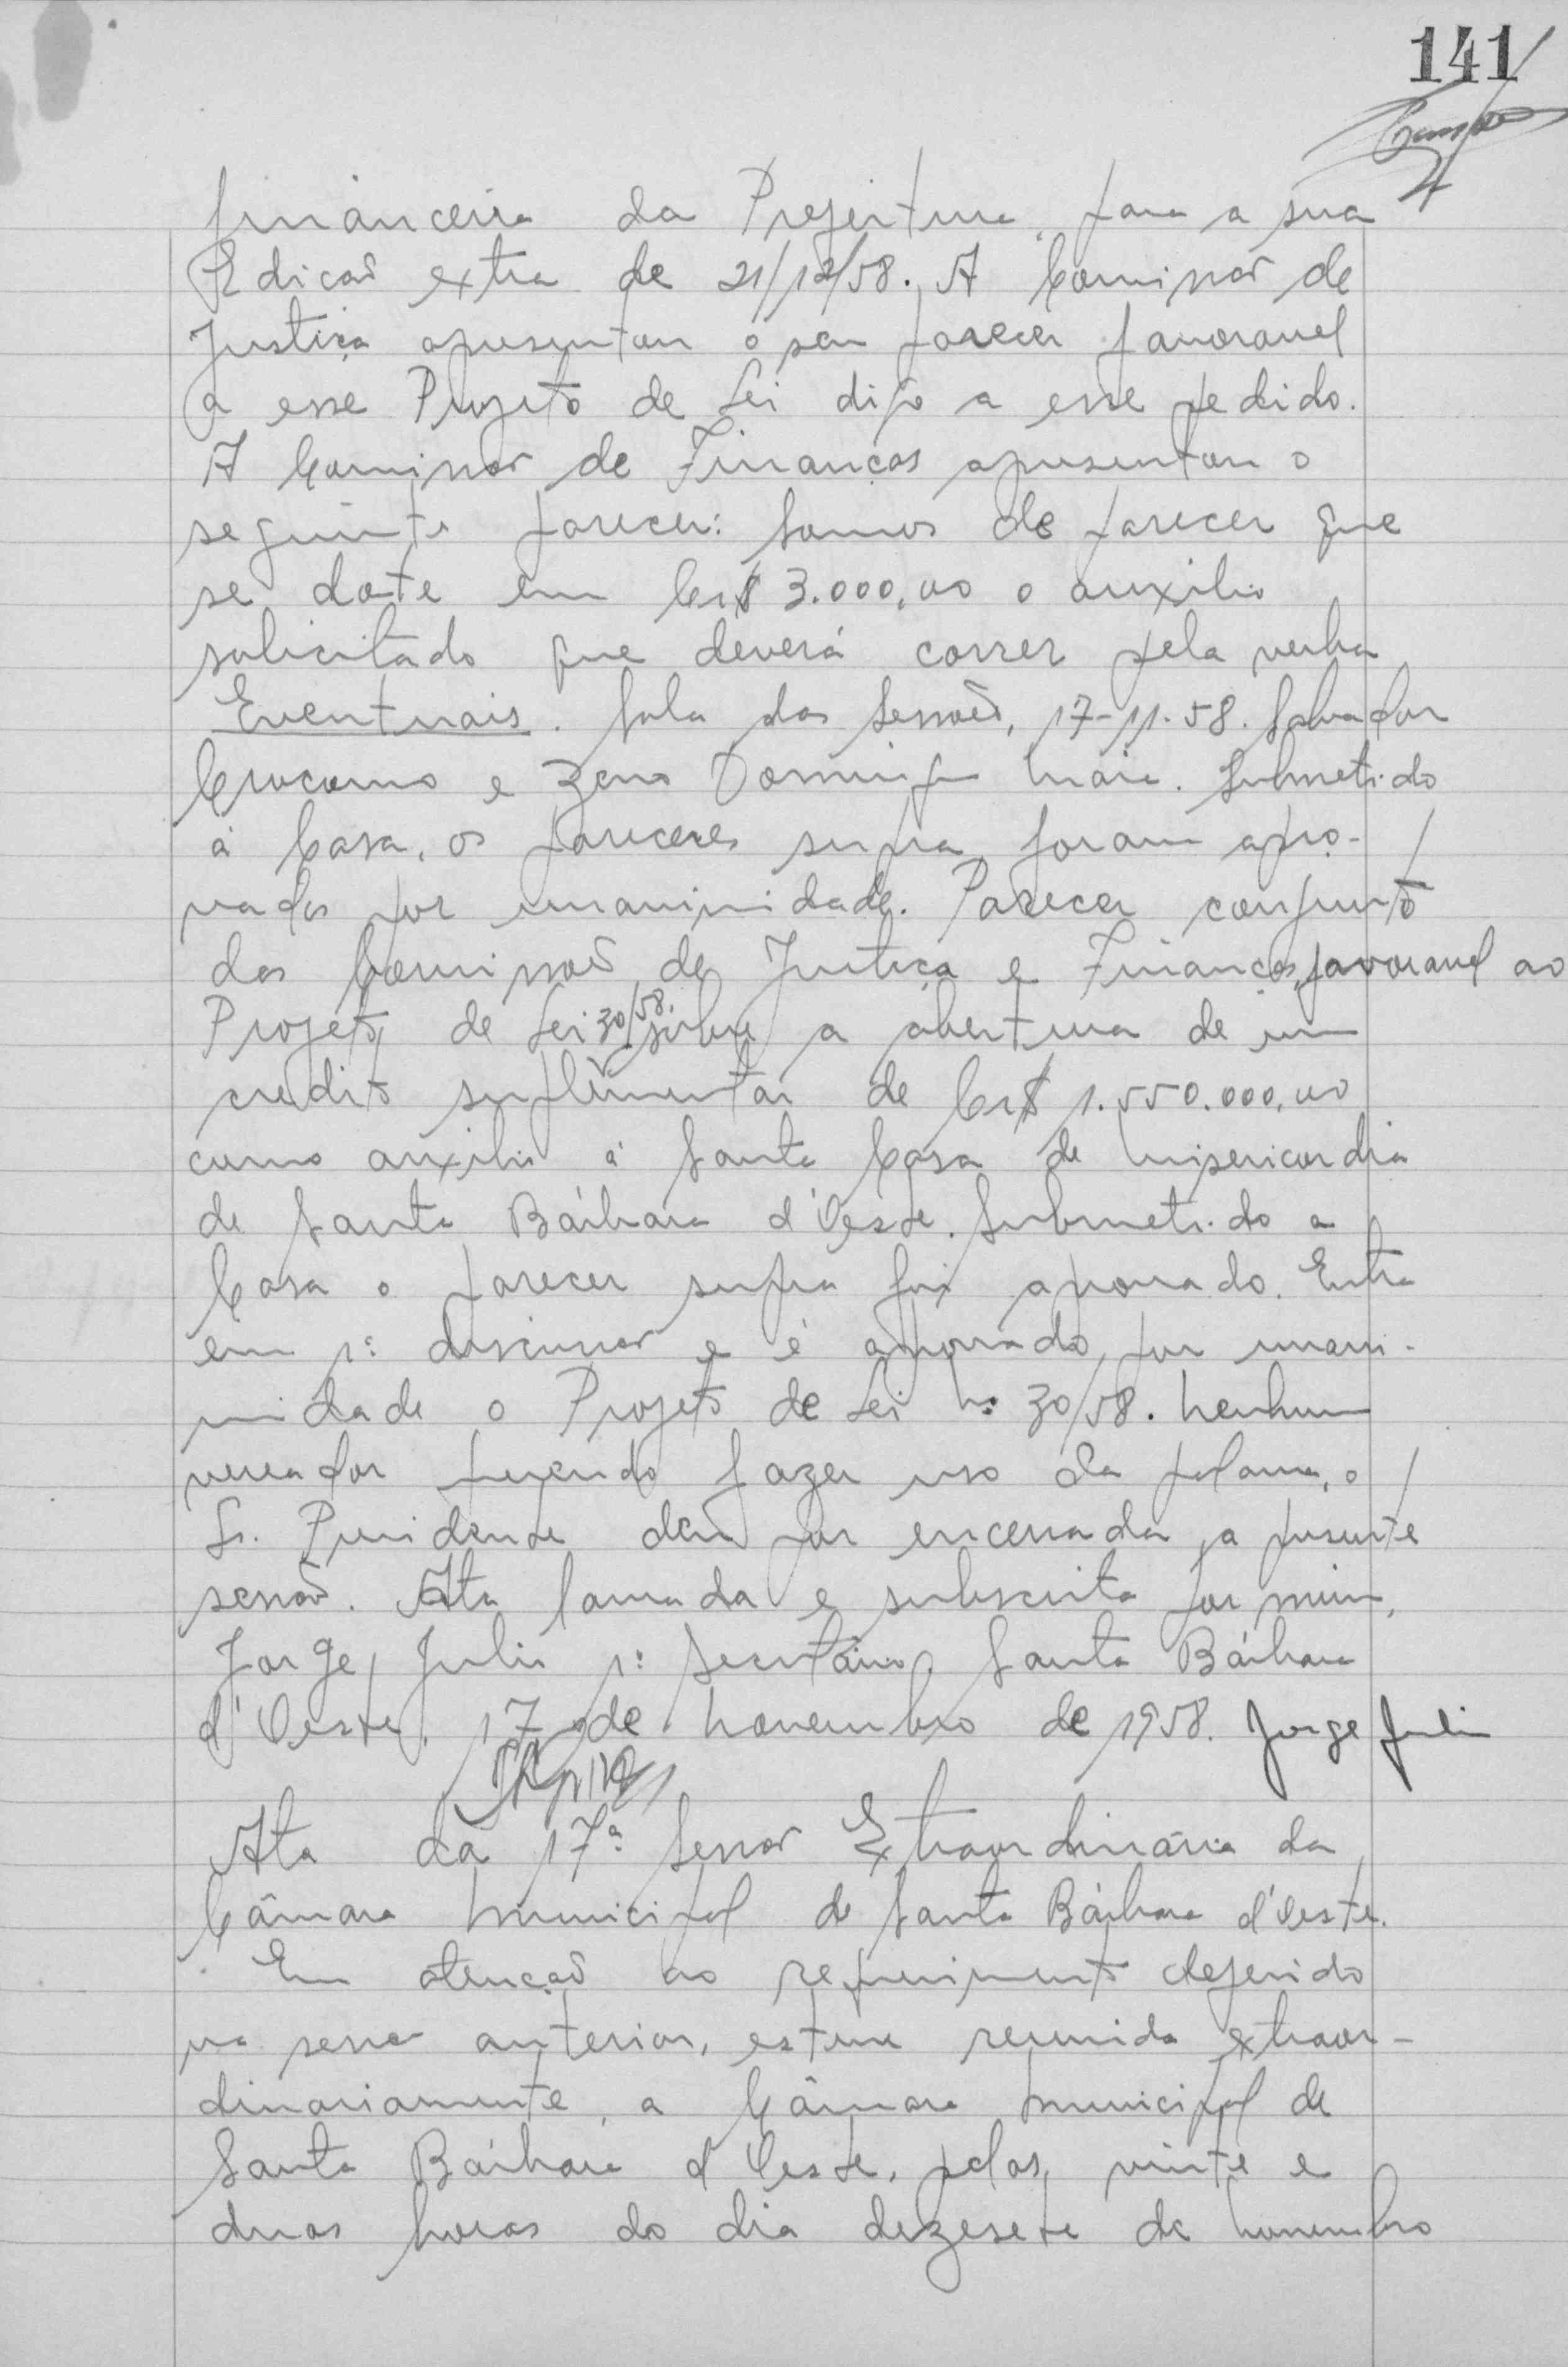 141
financeira da Prefeitura para a sua
Edicaõ extra de 21/12/58. A Comissaõ de
Justiça apresentou o seu parecer favoravel
a esse Projeto de Lei digo a esse pedido.
A Comissaõ de Finanças apresentou o
seguinte parecer: Somos de parecer que
se dote em Cr$ 3.000,00 o auxilio
solicitado que deverá correr pela verba
Eventuais. Sala das Sessoês, 17-11-58. Salvador
e Zeno Domingues Maia. Submetido
á Casa, os pareceres supra foram apro-
vados por unanimidade. Parecer conjunto
das Comissoẽs de Justiça e Finanças, favoravel ao
Projeto de Lei 30/58, sobre a abertura de um
credito suplementar de Cr$ 1.550.000,00
como auxilio á Santa Casa de Misericordia
de Santa Bárbara d'Oeste. Submetido a
Casa o parecer supra foi aprovado. Entra
em 1ª discussaõ e é aprovado por unani-
midade o Projeto de Lei nº 30/58. Nenhum
vereador querendo fazer uso da palavra, o
Sr. Presidente deu por encerrada a presente
sessaõ. Ata lavrada e subscrita por mim,
Jorge Julio 1º Secretário. Santa Bárbara
d'Oeste, 17 de Novembro de 1958. Jorge Julio
Ata da 17ª Sessaõ Extraordinária da
Câmara Municipal de Santa Bárbara d'Oeste.
Em atençaõ ao requerimento deferido
na sessaõ anterior, esteve reunida extraor-
dinariamente, a Câmara Municipal de
Santa Bárbara d'Oeste, pelas vinte e
duas horas do dia dezesete de novembro